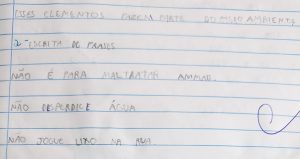 ESSES ELEMENTOS FAZEM PARTE DO MEIO AMBIENTE
2-ESCRITA DE FRASES
NÃO É PARA MALTRATAR ANIMAL.
NÃO DESPERDICE ÁGUA
NÃO JOGUE LIXO NA RUA.